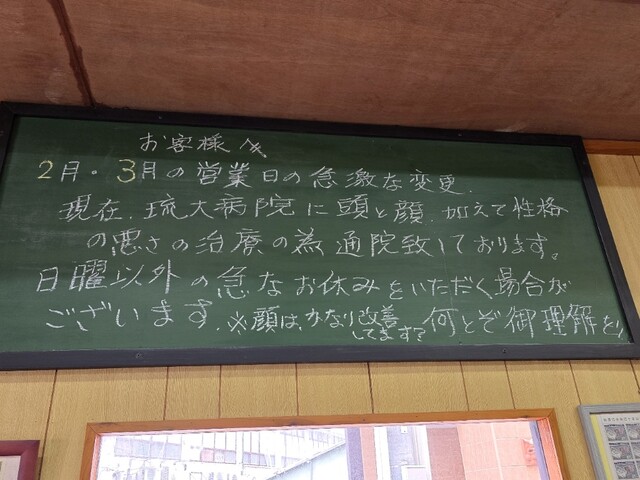 お客様へ
2月・3月の営業日の急激な変更.
現在.琉大病院に頭と顔.加えて性格
の悪さの治療の為通院致しております。
日曜以外の急なお休みをいただく場合が
ございます.※顔は、かなり改善してます?何とぞ御理解を!